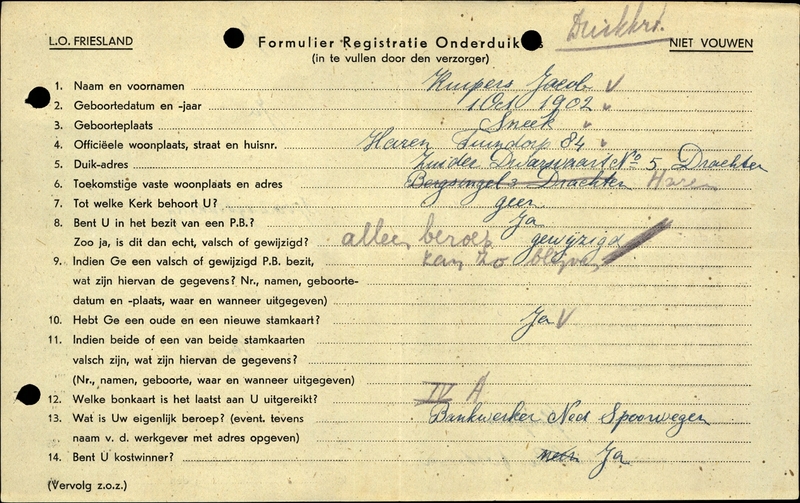 L.O. FRIESLAND
Formulier Registratie Onderduikers
(in te vullen door den verzorger)
NIET VOUWEN
1. Naam en voornamen Kuipers Jacob V
2. Geboortedatum en -jaar 1 Oct 1902
3. Geboorteplaats Sneek
4. Officiëele woonplaats, straat en huisnr. Haren Tuindorp 84
5. Duik-adres Zuider Dwarsvaart No 5 Drachten
6. Toekomstige vaste woonplaats en adres Bergsingel Drachten Haren
7. Tot welke Kerk behoort U? geen
8. Bent U in het bezit van een P.B.? Ja
Zoo ja, is dit dan echt, valsch of gewijzigd? alleen beroep gewijzigd
9. Indien Ge een valsch of gewijzigd P.B. bezit, kan zo blijven
wat zijn hiervan de gegevens? Nr., namen, geboorte-
datum en -plaats, waar en wanneer uitgegeven)
10. Hebt Ge een oude en een nieuwe stamkaart? Ja V
11. Indien beide of een van beide stamkaarten
valsch zijn, wat zijn hiervan de gegevens?
(Nr., namen, geboorte, waar en wanneer uitgegeven)
12. Welke bonkaart is het laatst aan U uitgereikt? IV A
13. Wat is Uw eigenlijk beroep? (event. tevens Bankwerker Ned Spoorwegen
naam v. d. werkgever met adres opgeven)
14. Bent U kostwinner? neen Ja
(Vervolg z.o.z.)